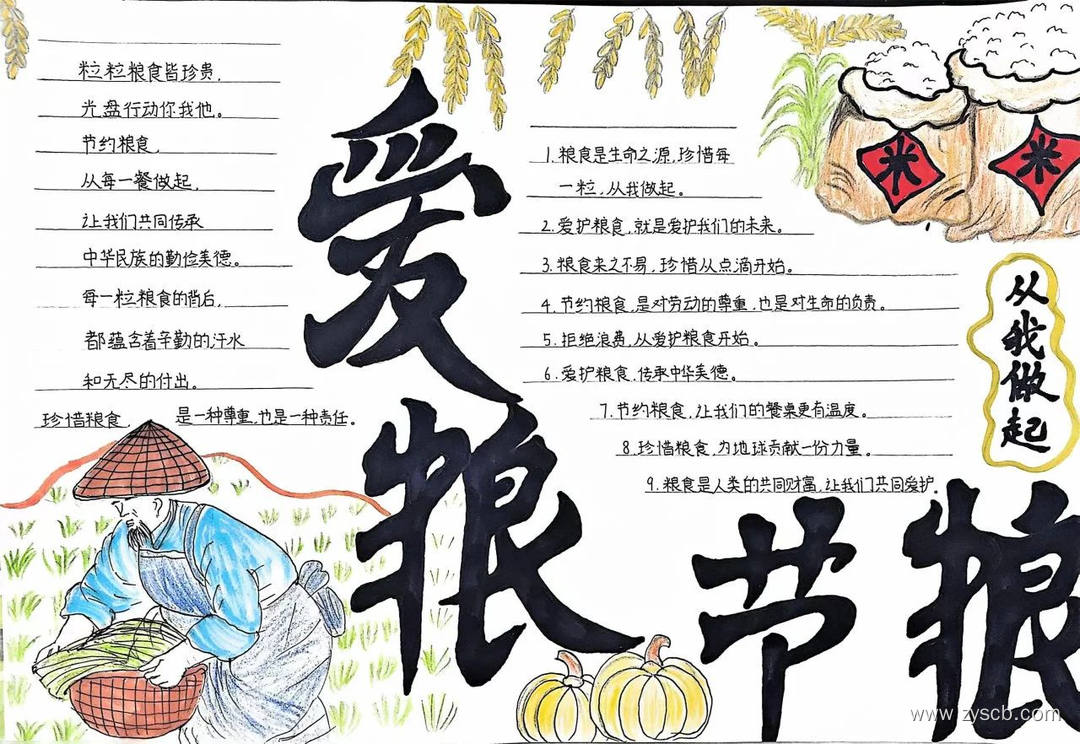 粒粒粮食皆珍贵,
光盘行动你我他。
节约粮食,
从每一餐做起,
让我们共同传承
中华民族的勤俭美德。
每一粒粮食的背后,
都蕴含着辛勤的汗水
和无尽的付出。
珍惜粮食, 是一种尊重,也是一种责任。
爱粮
节粮
1. 粮食是生命之源,珍惜每
一粒,从我做起。
2. 爱护粮食,就是爱护我们的未来。
3. 粮食来之不易,珍惜从点滴开始。
4. 节约粮食,是对劳动的尊重,也是对生命的负责。
5. 拒绝浪费,从爱护粮食开始。
6. 爱护粮食,传承中华美德。
7. 节约粮食,让我们的餐桌更有温度。
8. 珍惜粮食,为地球贡献一份力量。
9. 粮食是人类的共同财富,让我们共同爱护。
米
米
从我做起
www.zyscb.com